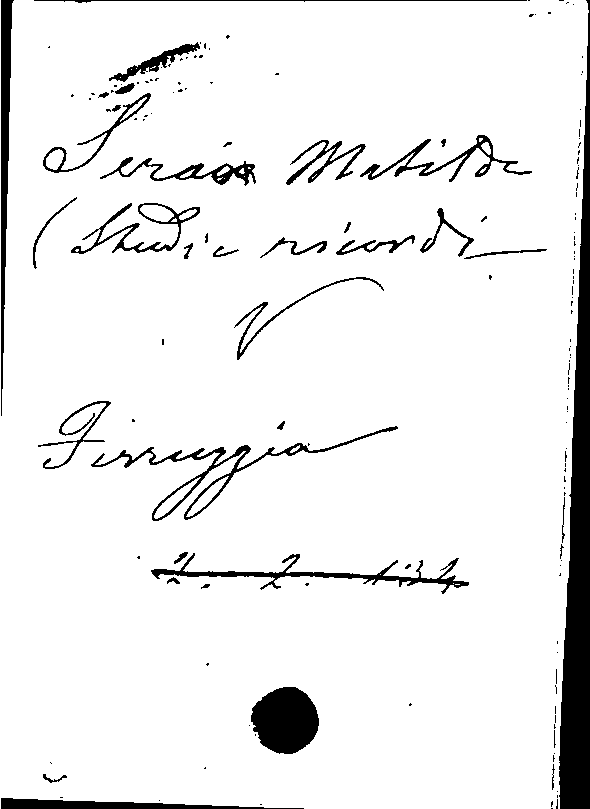 Serao Matilde
(Studi e ricordi
V
Firruggia
2. 2. 134